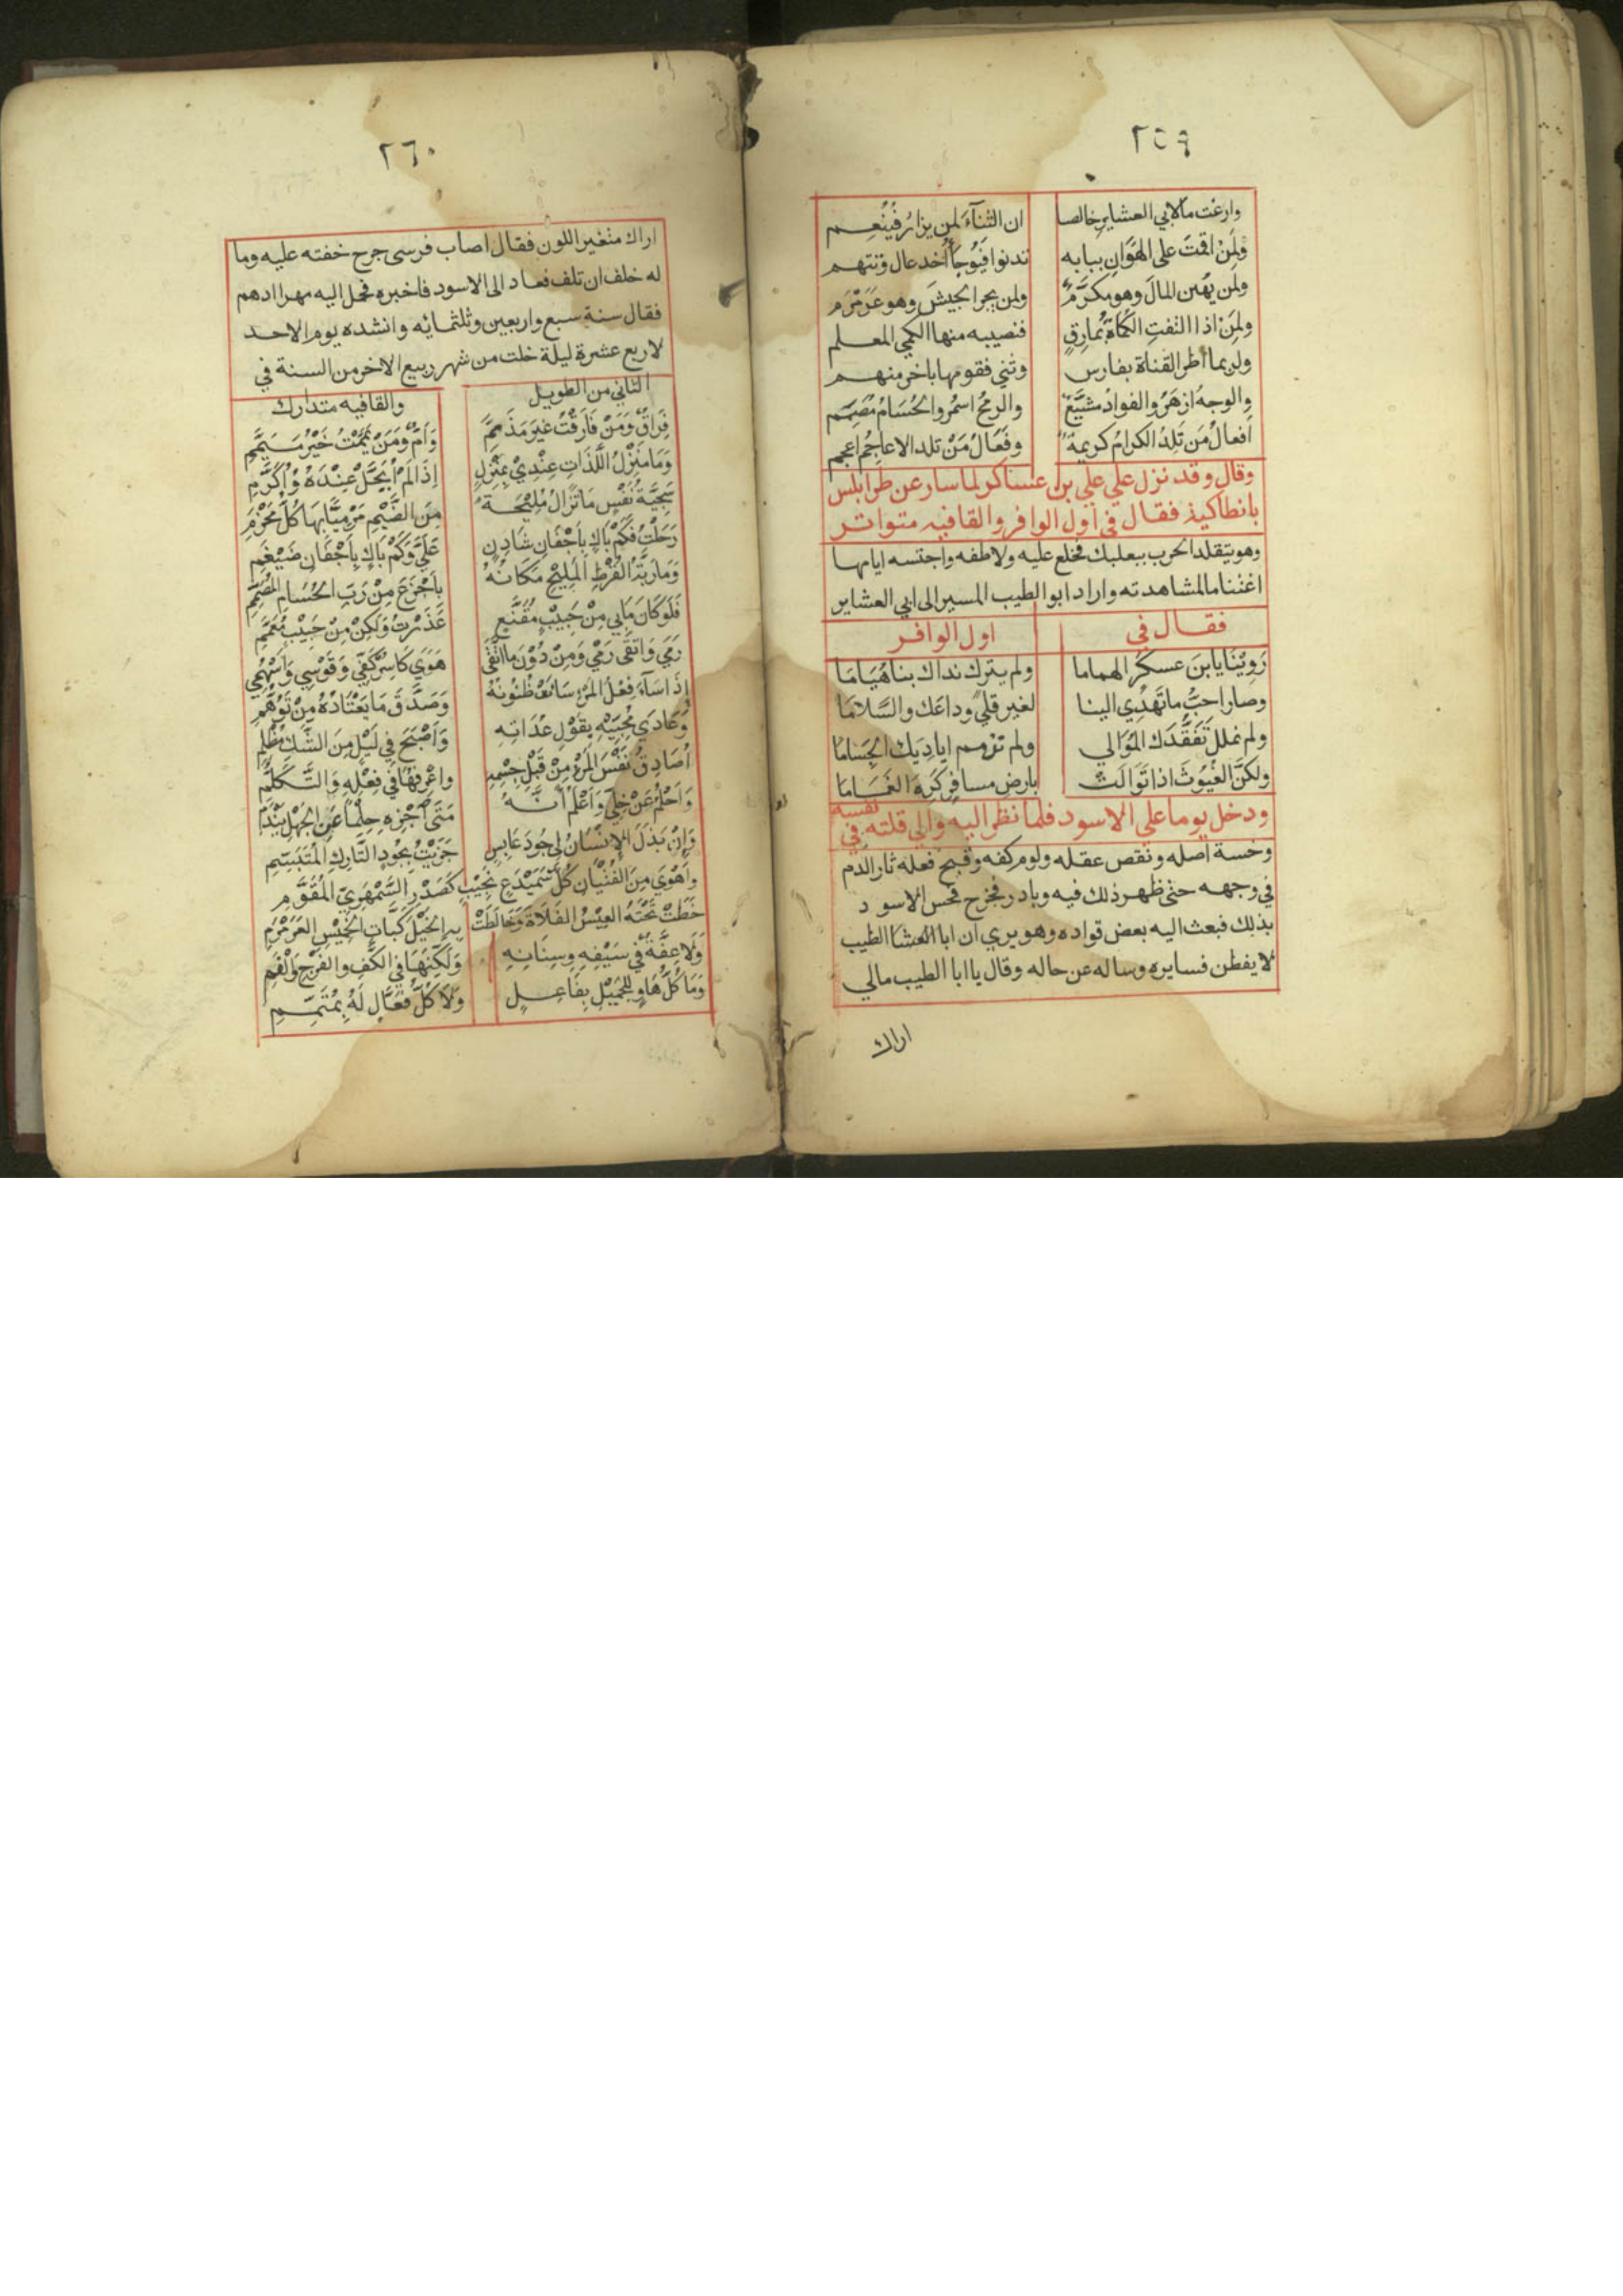 ٢٥٩
وارغت ما لابي العشاير خالصا ان الثناء لمن يزار فينعم
ولمن اقمت على الهوان ببابه تدنوا فيوجأ أخدعاك وتنهم
ولمن يهين المال وهو مكرم ولمن يجر الجيش وهو عرمرم
ولمن اذا التفت الكماة بمارق فنصيبه منها الكمي المعلم
ولربما اطر القناة بفارس وثنى فقومها باخر منهم
والوجه ازهر والفواد مشيع والرمح اسمر والحسام مصمم
افعال من تلد الكرام كريمة وفعال من تلد الاعاجم اعجم
وقال وقد نزل علي علي بن عساكر لما سار عن طرابلس
بانطاكية فقال في اول الوافر والقافيه متواتر
وهو يتقلد الحرب ببعلبك فخلع عليه ولاطفه واجتسه اياما
اغتناما لمشاهدته واراد ابو الطيب المسير الى ابي العشاير
فقال في اول الوافر
روينا يا بن عسكر الهماما ولم يترك نداك بنا هياما
وصار احب ما تهدي الينا لغير قلى وداعك والسلاما
ولم نملل تفقدك الموالي ولم نذمم اياديك الجساما
ولكن الغيوث اذا توالت بارض مسافر كره الغماما
ودخل يوما على الاسود فلما نظر اليه والى قلته في نفسه
وخسة اصله ونقص عقله ولوم كفه وقبح فعله ثار الدم
في وجهه حتى ظهر ذلك فيه وبادر فخرج فحس الاسود
بذلك فبعث اليه بعض قواده وهو يري ان ابا العشا الطيب
لا يفطن فسايره وساله عن حاله وقال يا ابا الطيب مالي
اراك
٢٦٠
اراك متغير اللون فقال اصاب فرسى جرح خفته عليه وما
له خلف ان تلف فعاد الى الاسود فاخبره فحمل اليه مهرا ادهم
فقال سنة سبع واربعين وثلثمائه وانشده يوم الاحد
لاربع عشرة ليلة خلت من شهر ربيع الاخر من السنة في
الثاني من الطويل والقافيه متدارك
فِرَاقٌ وَمَنْ فَارَقْتُ غَيْرَ مَذَمَّمِ وَأَمٌّ وَمَنْ يَمَّمْتُ خَيْرُ مُيَمَّمِ
وَمَا مَنْزِلُ اللَّذَاتِ عِنْدِيْ بِمَنْزِلٍ إِذَا لَمْ أُبَجَّلْ عِنْدَهُ وَأُكَرَّمِ
سَجِيَّةُ نَفْسٍ مَا تَزَالُ مُلِيْحَةً مِنَ الضَّيْمِ مَرْمِيًّا بِهَا كُلَّ مَخْرَمِ
رَحَلْتُ فَكَمْ بَاكٍ بِأَجْفَانِ شَادِنٍ عَلَيَّ وَكَمْ بَاكٍ بِأَجْفَانِ ضَيْغَمِ
وَمَا رَبَّةُ الْقُرْطِ الْمَلِيْحِ مَكَانُهُ بِأَجْزَعَ مِنْ رَبِّ الْحُسَامِ الْمُصَمِّمِ
فَلَوْ كَانَ مَا بِي مِنْ حَبِيْبٍ مُقَنَّعِ عَذَرْتُ وَلَكِنْ مِنْ حَبِيْبٍ مُعَمَّمِ
رَمَى وَاتَّقَى رَمْيِي وَمِنْ دُوْنَ مَا اتَّقَى هَوًى كَاسِرٌ كَفِّي وَقَوْسِي وَأَسْهُمِي
إِذَا سَآءَ فِعْلُ الْمَرْءِ سَاءَتْ ظُنُونُهُ وَصَدَّقَ مَا يَعْتَادُهُ مِنْ تَوَهُّمِ
وَعَادَى مُحِبِّيْهِ بِقَوْلِ عُدَاتِهِ وَأَصْبَحَ فِي لَيْلٍ مِنَ الشَّكِّ مُظْلِمِ
أُصَادِقُ نَفْسَ الْمَرْءِ مِنْ قَبْلِ جِسْمِهِ وَاعْرِفُهَا فِي فِعْلِهِ وَالتَّكَلُّمِ
وَأَحْلُمُ عَنْ خِلِّي وَأَعْلَمُ أَنَّهُ مَتَى أَجْزِهِ حِلْمًا عَنِ الْجَهْلِ يَنْدَمِ
وَإِنْ بَذَلَ الْإِنْسَانُ لِي جُودَ عَابِسٍ جَزَيْتُ بِجُودِ التَّارِكِ الْمُتَبَسِّمِ
وَأَهْوَى مِنَ الْفِتْيَانِ كُلَّ سَمَيْدَعٍ نَجِيْبٍ كَصَدْرِ السَّمْهَرِيِّ الْمُقَوَّمِ
خَطَتْ تَحْتَهُ الْعِيْسُ الْفَلَاةَ وَخَالَطَتْ بِهِ الْخَيْلُ كَبَّاتِ الْخَمِيْسِ الْعَرَمْرَمِ
وَلَا عِفَّةٌ فِي سَيْفِهِ وَسِنَانِهِ وَلَكِنَّهَا فِي الْكَفِّ وَالْفَرْجِ وَالْفَمِ
وَمَا كُلُّ هَاوٍ لِلْجَمِيْلِ بِفَاعِلٍ وَلَا كُلُّ فَعَّالٍ لَهُ بِمُتَمِّمِ